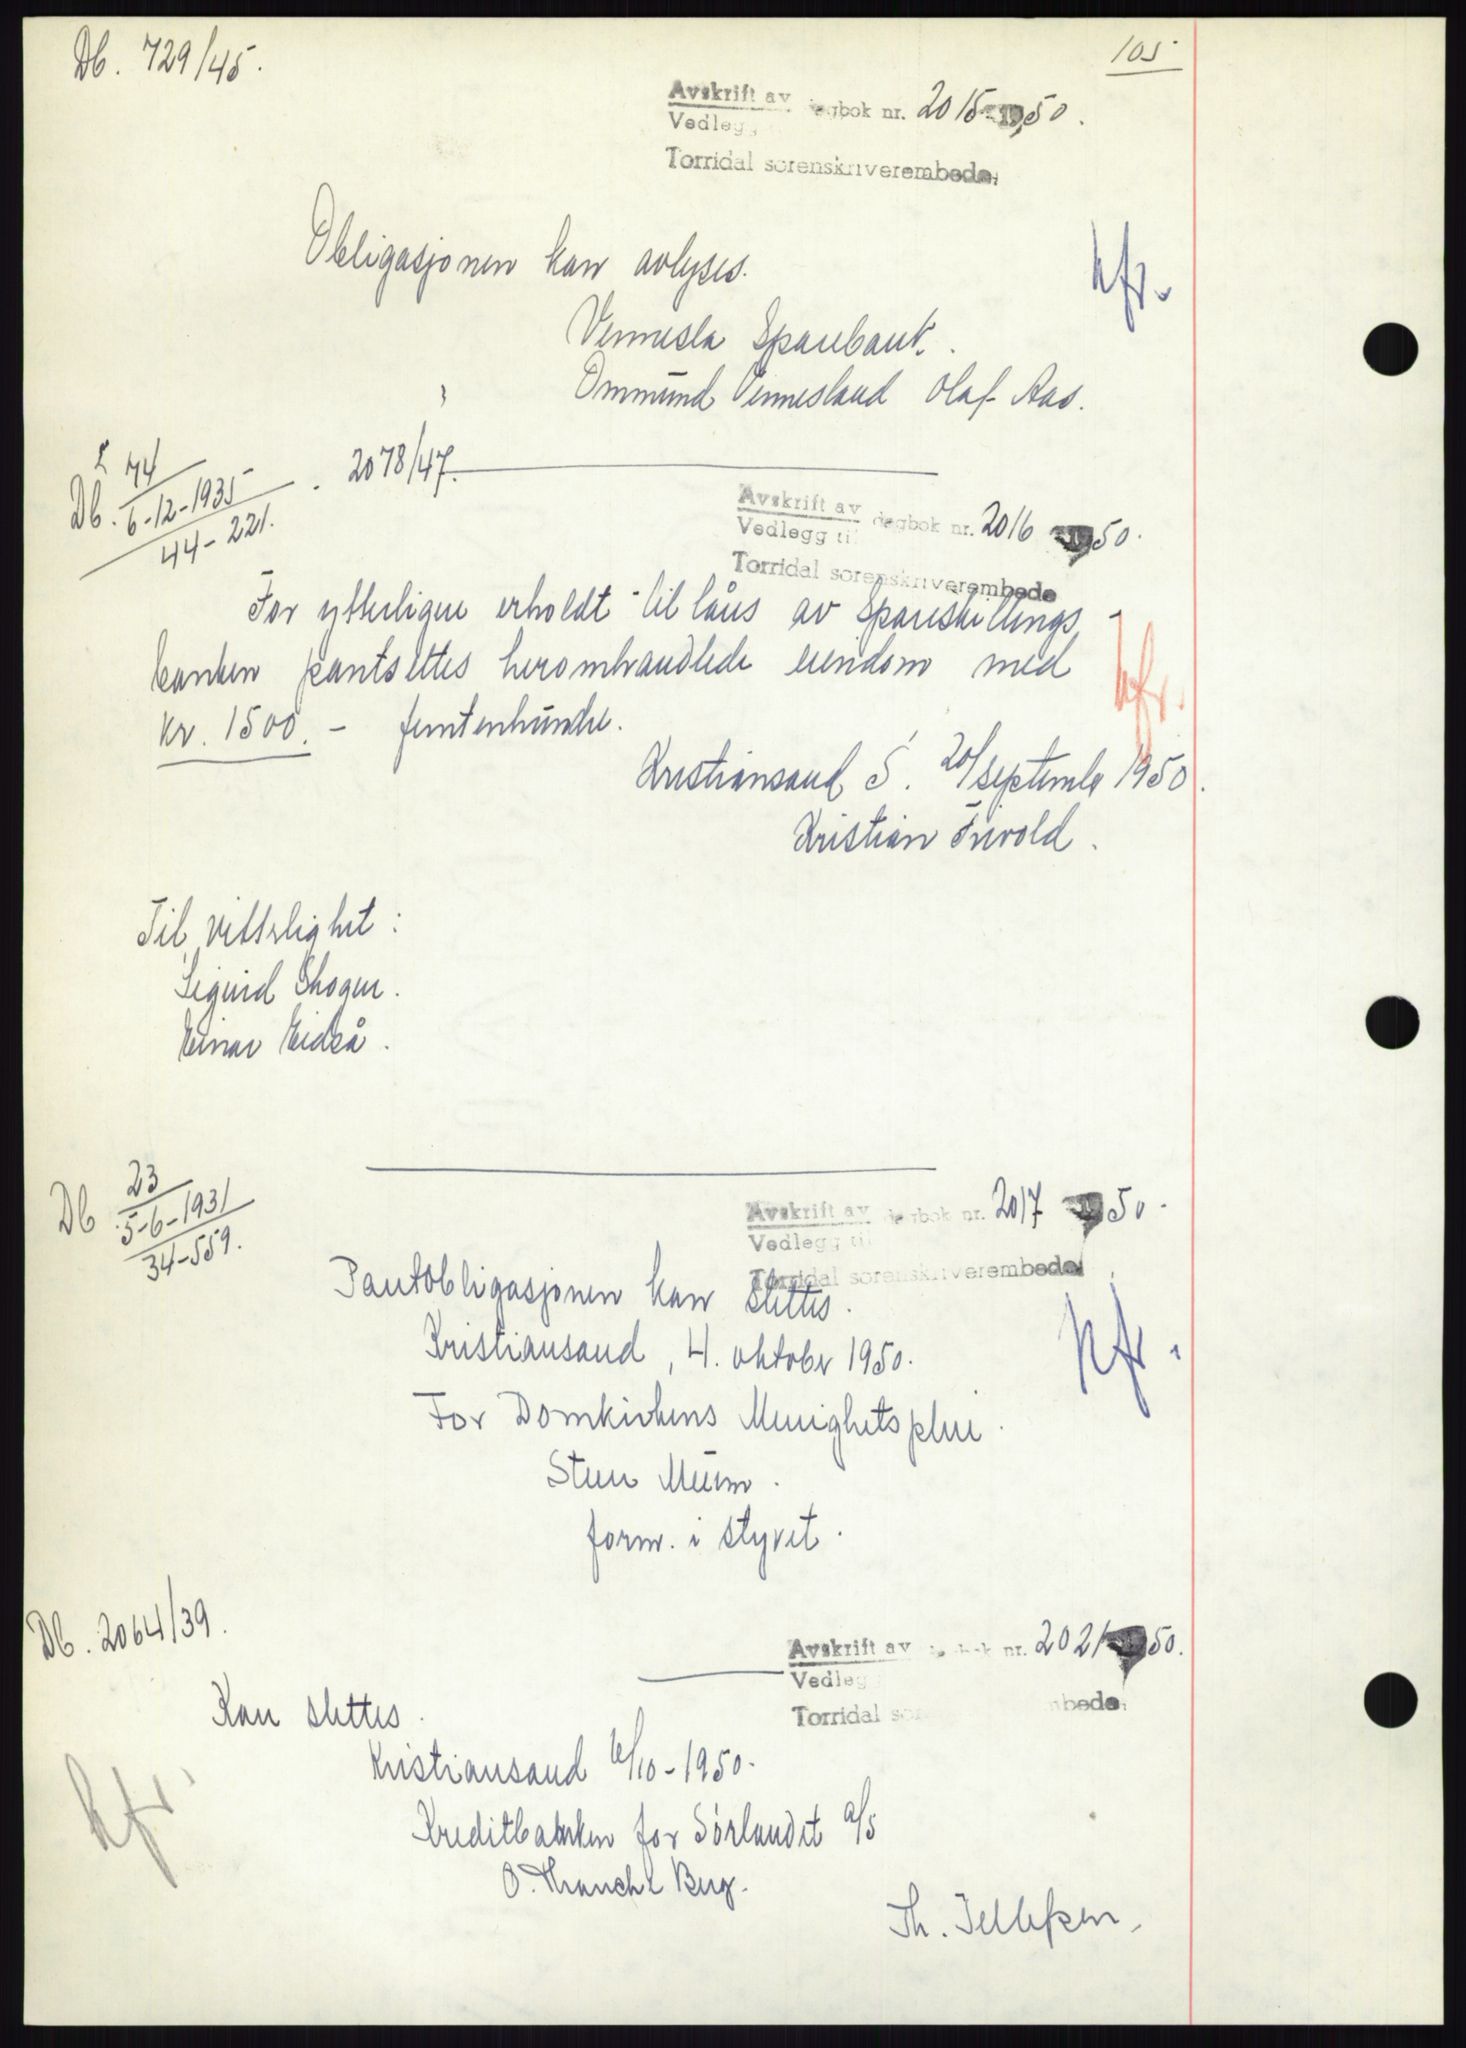 Db. 729/45.
105
Avskrift av dagbok nr. 2015 - 1950.
Vedlegg
Torridal sorenskriverembede.
Obligasjonen kan avlyses.
kfr.
Vennesla Sparebank.
Ommund Vennesland Olaf Aas.
Db. 74
6-12-1935 . 2078/47.
44-221.
Avskrift av dagbok nr. 2016 1950.
Vedlegg til
Torridal sorenskriverembede
For ytterligere erholdt til låns av Spareskillings-
banken pantsettes heromhandlede eiendom med
kr. 1500.- femtenhundre.
kfr.
Kristiansand S. 20/september 1950.
Kristian Trivold.
Til vitterlighet:
Sigurd Skogen.
Einar Eidså.
Db 23
5-6-1931
34-559.
Avskrift av dagbok nr. 2017 1950.
Vedlegg til
Torridal sorenskriverembede
Pantobligasjonen kan slettes.
Kristiansand, 4. oktober 1950.
kfr.
For Domkirkens Menighetspleie.
Steen
form. i styret.
Db. 2064/39.
Avskrift av dagbok nr. 2021 1950.
Vedlegg
Torridal sorenskriverembede.
Kan slettes.
Kristiansand 6/10-1950.
kfr.
Kreditbanken for Sørlandet a/s
O. Berg.
Th. Tellefsen.